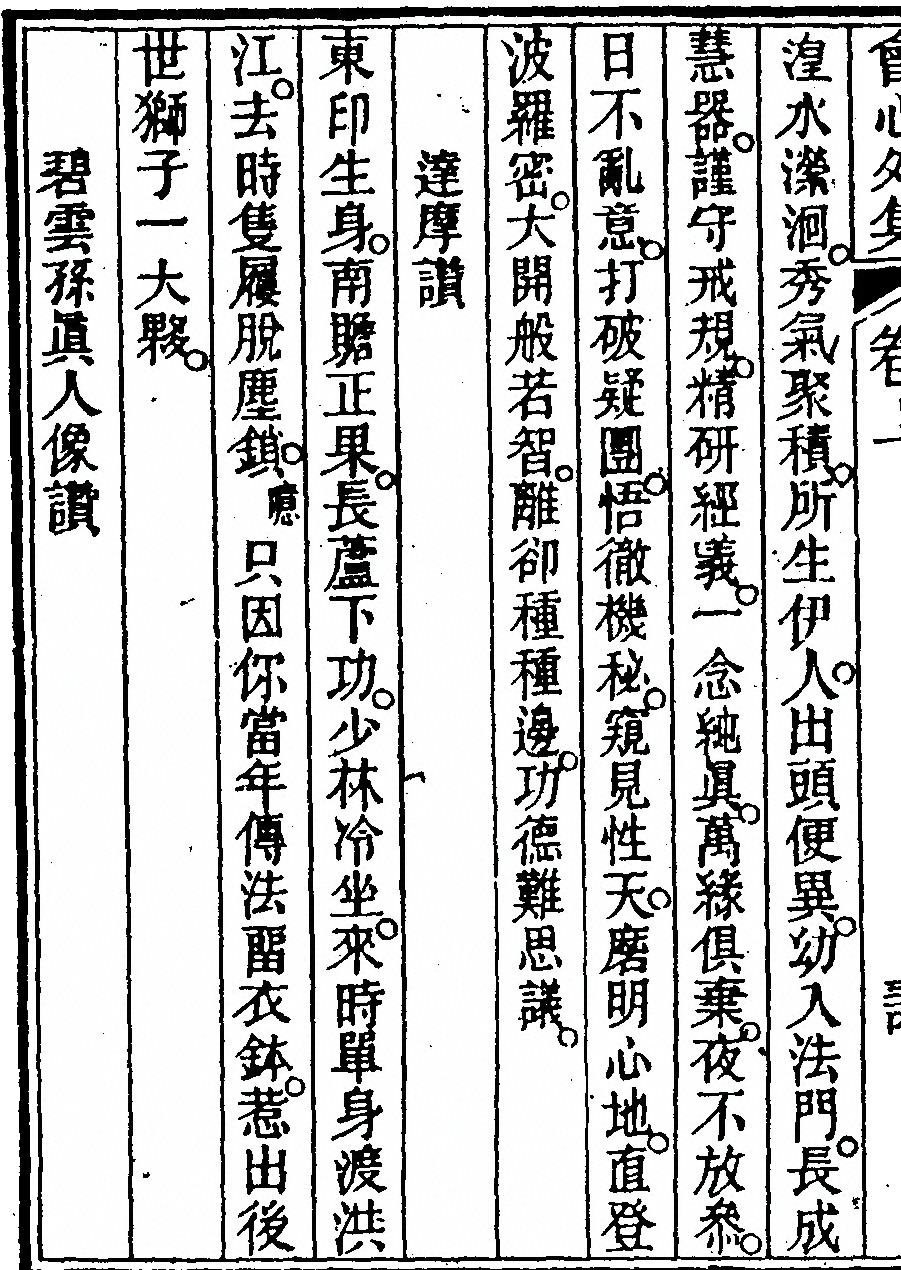 會心外集 卷
湟水瀠洄秀氣聚積所生伊人出頭便異幼入法門長成
慧器謹守戒規精研經義一念純眞萬緣俱棄夜不放參
日不亂意打破疑團悟徹機秘窺見性天磨明心地直登
波羅密大開般若智離卻種種邊功德難思議
達摩讚
東印生身南贍正果長蘆下功少林冷坐來時單身渡洪
江去時隻履脫塵鎖噫只因你當年傳法留衣鉢惹出後
世獅子一大夥
碧雲孫眞人像讚